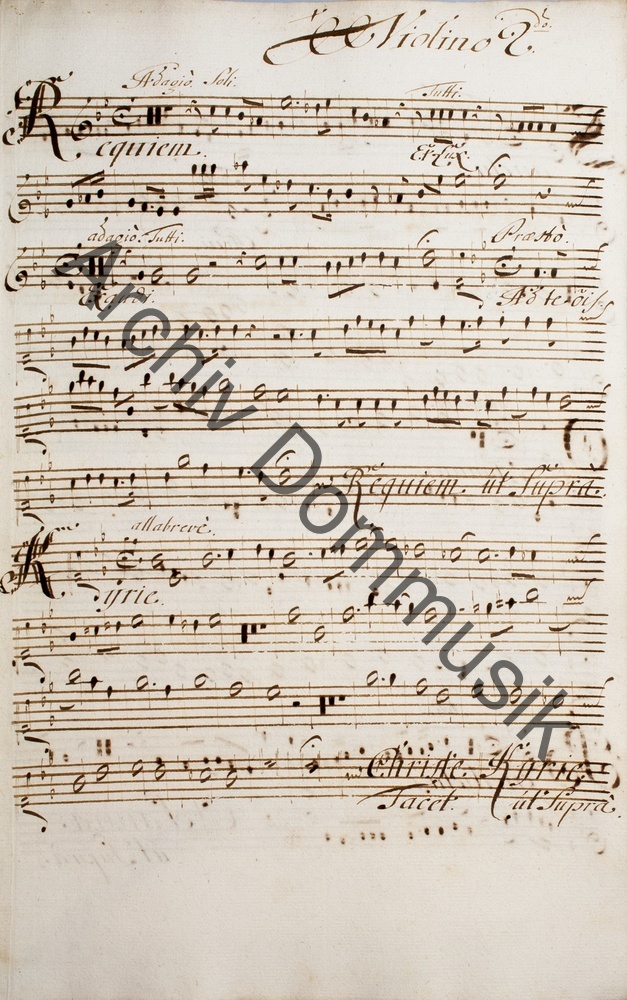 Violino 2do.
Adagio. Soli.
Tutti.
Requiem.
adagio. Tutti.
Præsto.
Exaudi.
Ad te
Requiem. ut Supra.
allabreve.
Kyrie.
Christe. Kyrie.
Tacet. ut Supra.
Archiv Dommusik